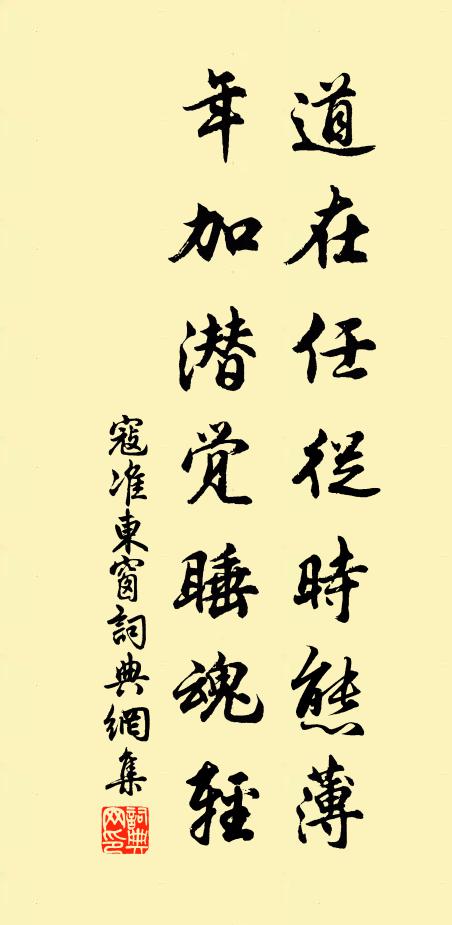 道在任從時態薄
年加潜觉睡魂輕
寇准東窗詞典網集
詞典网印